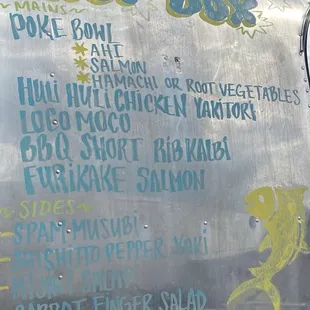 ~MAINS~
BOX
POKE BOWL
*AHI
*SALMON
*HAMACHI OR ROOT VEGETABLES
HULI HULI CHICKEN YAKITORI
LOCO MOCO
BBQ SHORT RIB KALBI
FURIKAKE SALMON
~SIDES~
SPAM MUSUBI
SHISHITO PEPPER YAKI
SALAD
CARROT FINGER SALAD